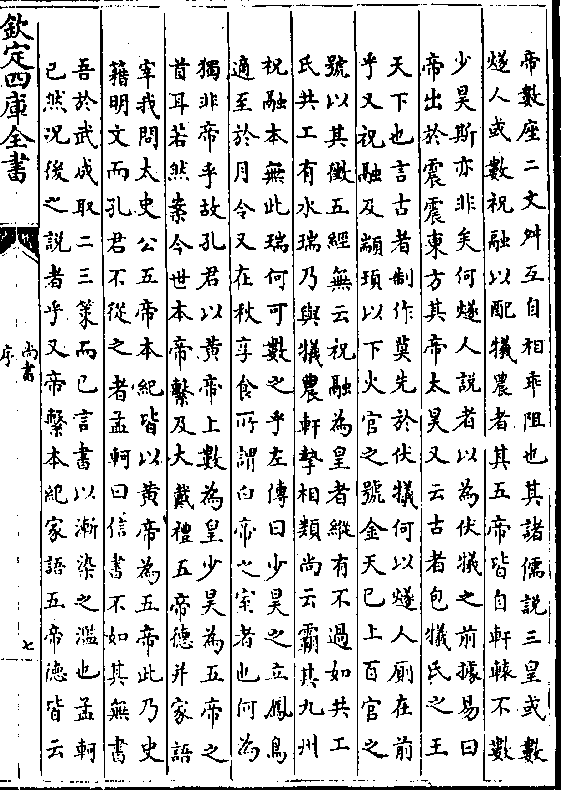 帝數座二文舛互自相乖阻也其諸儒說三皇或數
燧人或數祝融以配犧農者其五帝皆自軒轅不數
少昊斯亦非矣何燧人說者以為伏犧之前據易曰
帝出於震震東方其帝太昊又云古者包犧氏之王
天下也言古者制作莫先於伏犧何以燧人厠在前
乎又祝融及顓頊以下火官之號金天已上百官之
號以其徵五經無云祝融為皇者縱有不過如共工
氏共工有水瑞乃與犧農軒摯相類尚云霸其九州
祝融本無此瑞何可數之乎左傳曰少昊之立鳳鳥
適至於月令又在秋享食所謂白帝之室者也何為
獨非帝乎故孔君以黃帝上數為皇少昊為五帝之
首耳若然案今世本帝繫及大戴禮五帝德并家語
宰我問太史公五帝本紀皆以黃帝為五帝此乃史
籍明文而孔君不從之者孟軻曰信書不如其無書
吾於武成取二三策而已言書以漸染之濫也孟軻
已然況後之說者乎又帝繫本紀家語五帝德皆云
欽定四庫全書
尚書
序
七